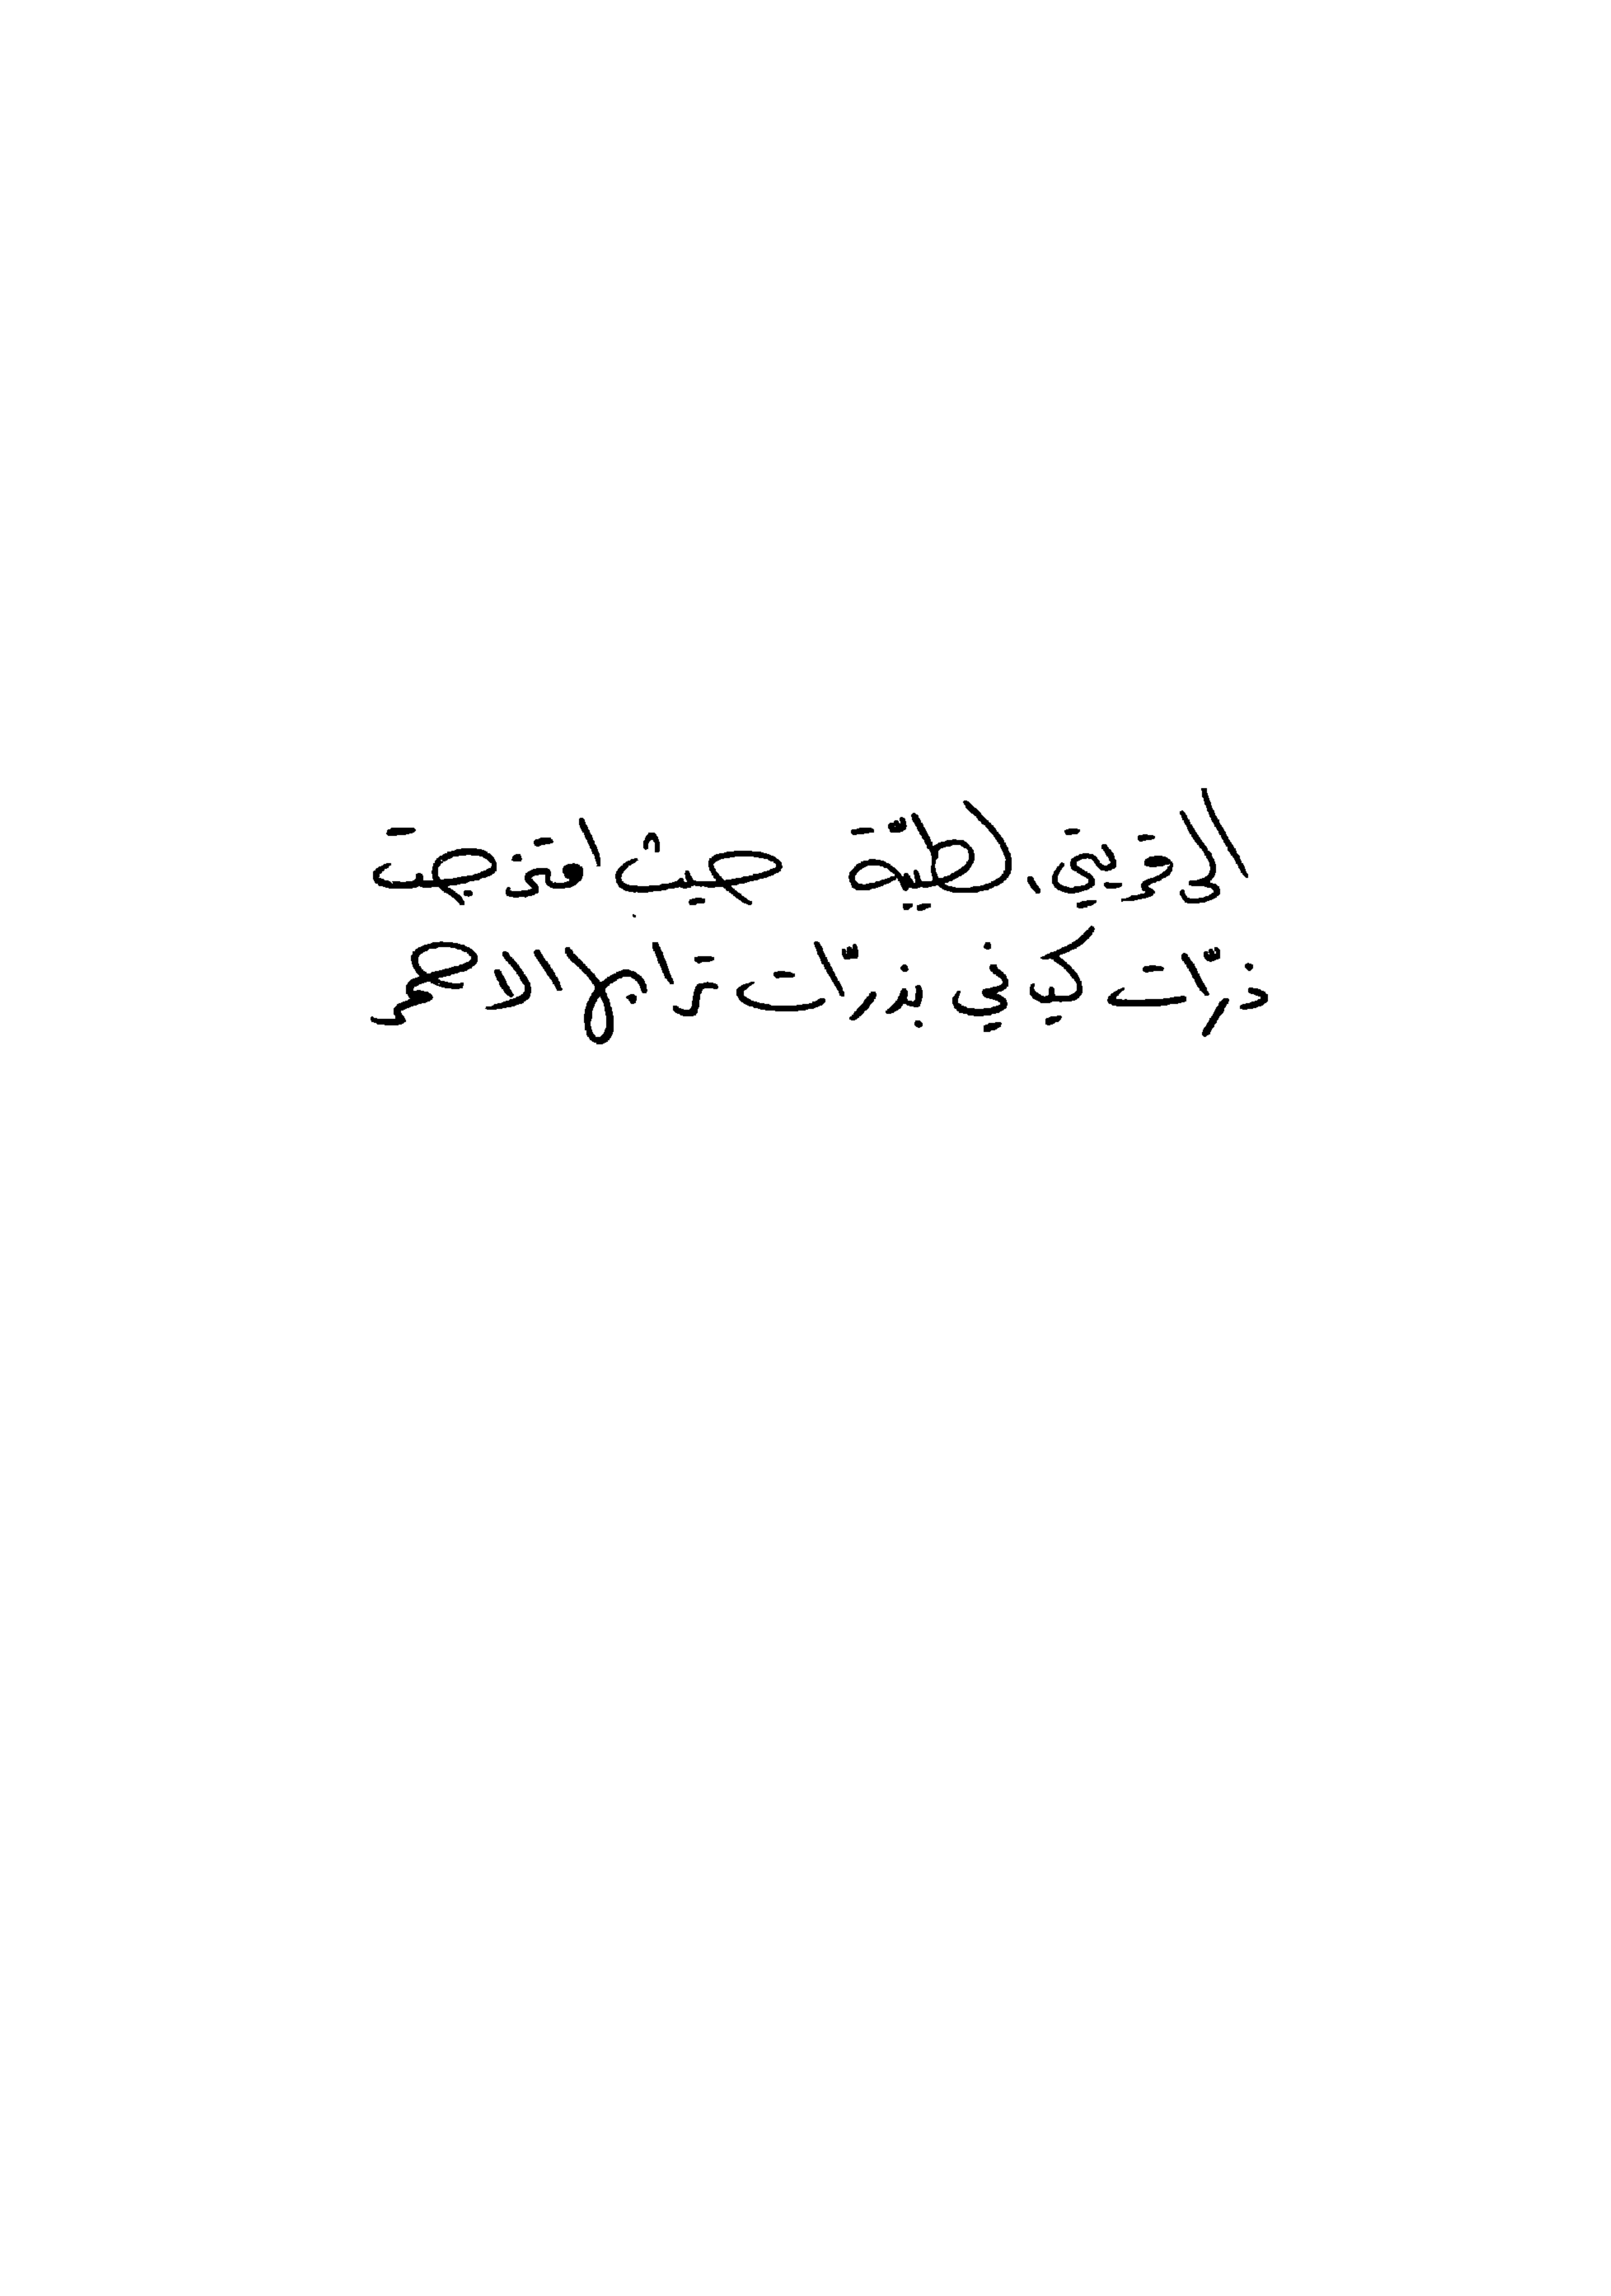 الى قريتي الطيّبة حيث امتزجت
ذرّات كياني بذرّات ترابها الاحمر